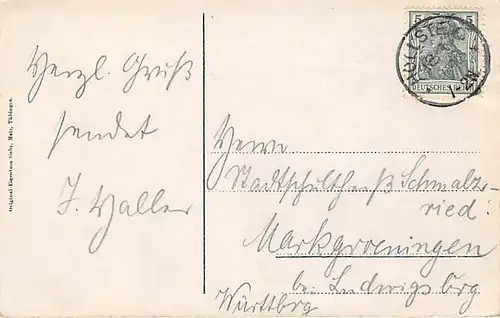 Herzl. Gruß
sendet
J. Haller
Original-Eigentum Gebr. Metz, Tübingen.
5 5
DEUTSCHES REICH
1-2N
Herrn
Stadtschultheiß Schmalz-
ried:
Markgroeningen
bei Ludwigsbrg
Württbrg